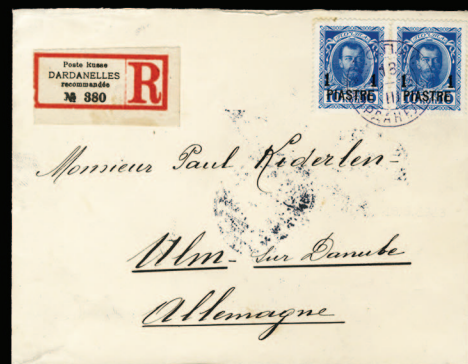 Poste Russe
DARDANELLES
recommandée
№ 380
R
1 1
PIASTRE
1 1
PIASTRE
Monsieur Paul Kiderlen-
Ulm - sur Danube
Allemagne